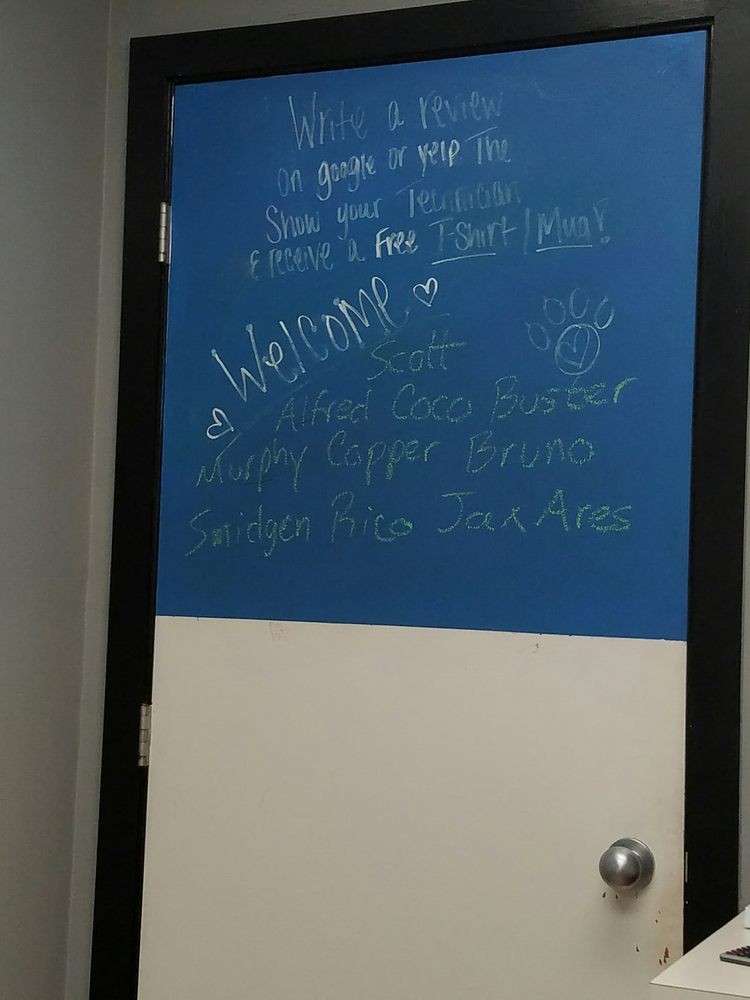 Write a review
on google or yelp. The
Show your Technician
& receive a Free T-Shirt / Mug!
Welcome
Scott
Alfred Coco Buster
Murphy Copper Bruno
Smidgen Rico Jax Ares